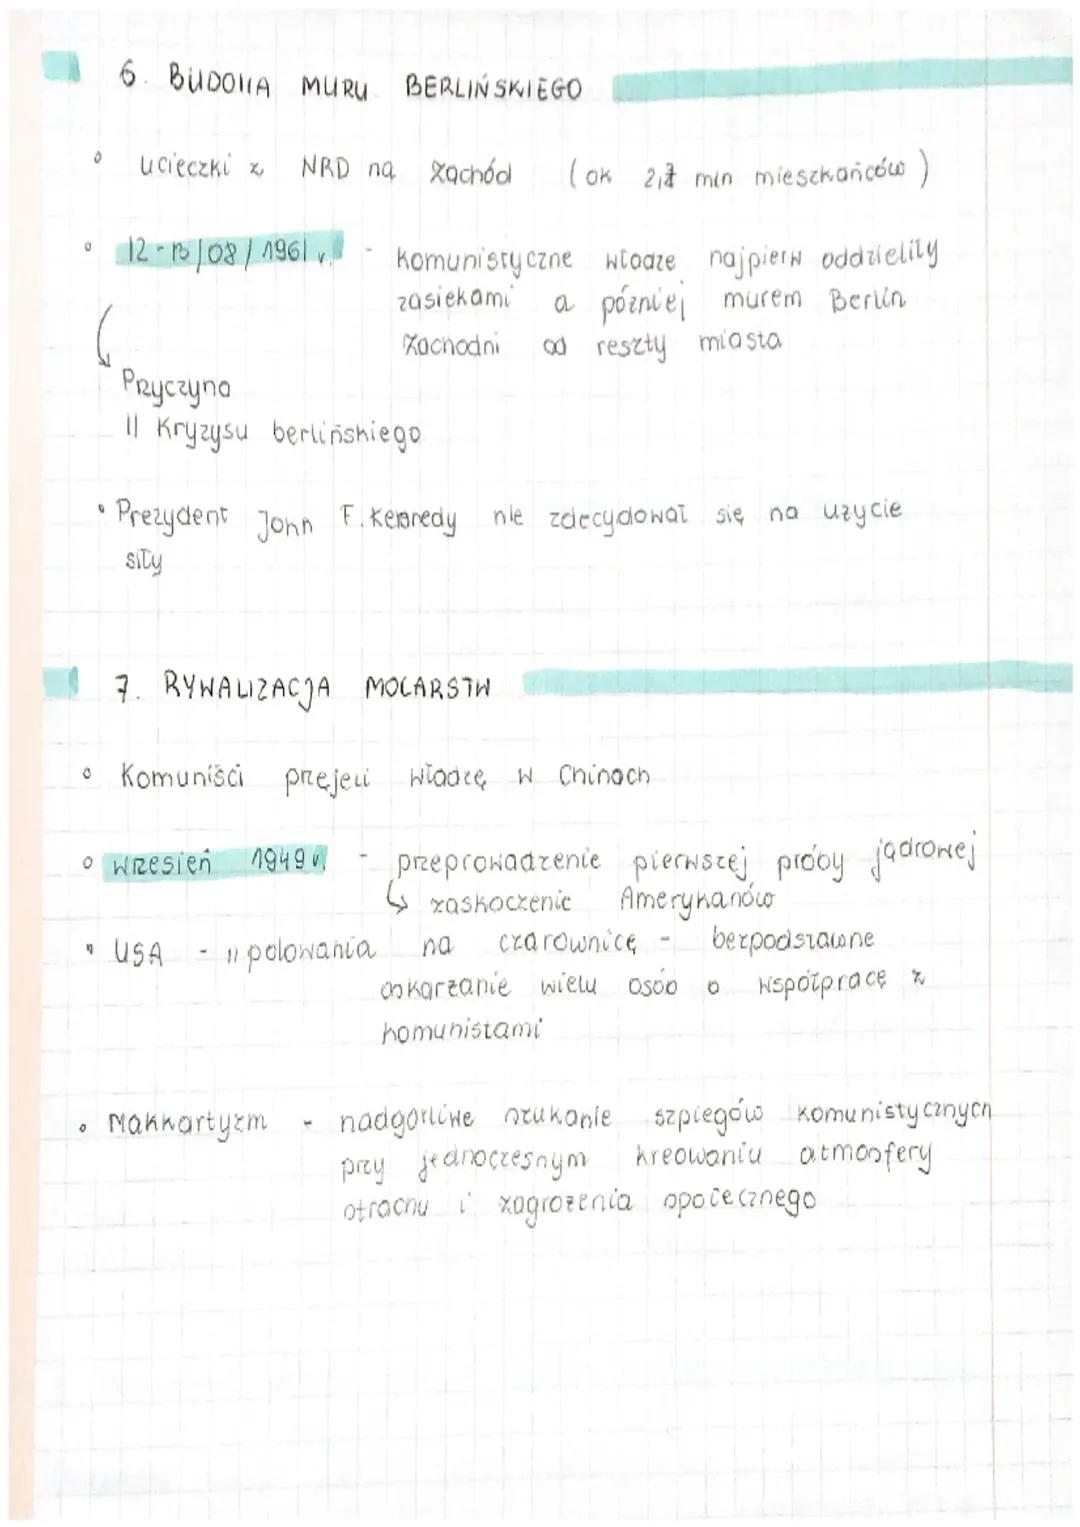 6. BUDOWA MURU BERLIŃSKIEGO
ucieczki z NRD na Zachód (ok 2,7 mln mieszkańców)
12-13/08/1961 r. - Komunistyczne władze najpierw oddzieliły
zasiekami a później murem Berlin
Zachodni od reszty miasta
Przyczyna
II Kryzysu berlińskiego
Prezydent John F. Kennedy nie zdecydował się na użycie
siły
7. RYWALIZACJA MOCARSTW
Komuniści przejęli władzę w Chinach
wrzesień 1949 r. - przeprowadzenie pierwszej próby jądrowej
↳ zaskoczenie Amerykanów
USA - "polowania na czarownice - bezpodstawne
oskarżanie wielu osób o współpracę z
komunistami
Makkartyzm - nadgorliwe szukanie szpiegów komunistycznych
przy jednoczesnym kreowaniu atmosfery
strachu i zagrożenia społecznego